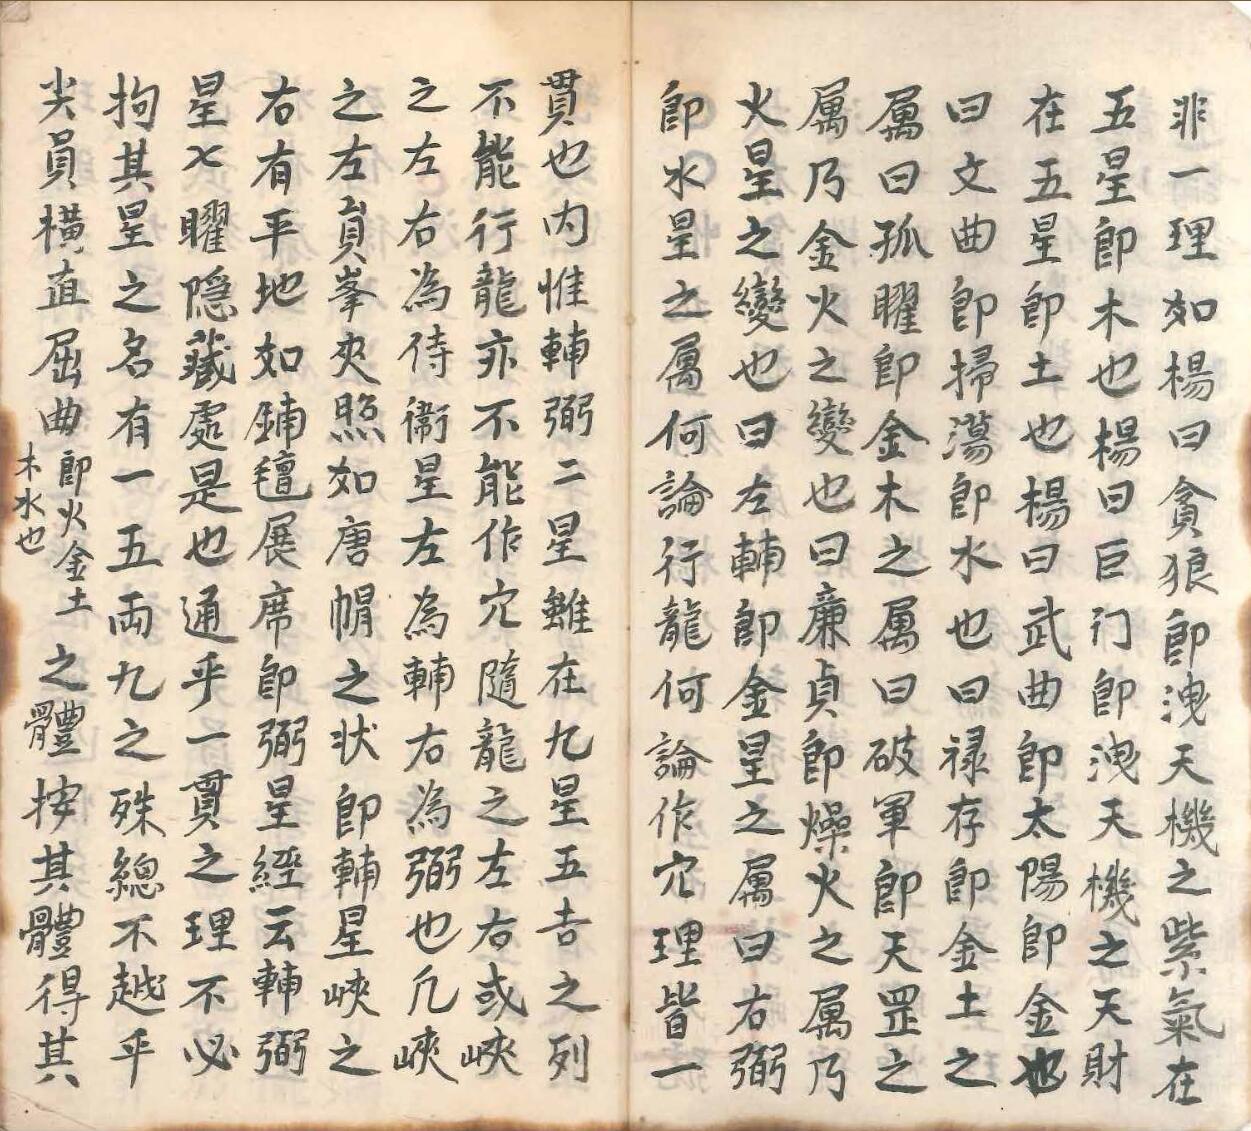 非一理如楊曰貪狼即洩天機之紫氣在
五星即木也楊曰巨门即洩天機之天財
在五星即土也楊曰武曲即太陽即金也
曰文曲即掃蕩即水也曰禄存即金土之
属曰孤曜即金木之属曰破軍即天罡之
属乃金火之變也曰廉貞即燥火之属乃
火星之變也曰左輔即金星之属曰右弼
即水星之属何論行龍何論作穴理皆一
貫也内惟輔弼二星雖在九星五吉之列
不能行龍亦不能作穴隨龍之左右或峽
之左右為侍衞星左為輔右為弼也凢峽
之左右員峯夾照如唐帽之状即輔星峽之
右有平地如鋪氊展席即弼星經云輔弼
星七曜隠藏處是也通乎一貫之理不必
拘其星之名有一五両九之殊總不越乎
尖員橫直屈曲即火金土木水也之體按其體得其